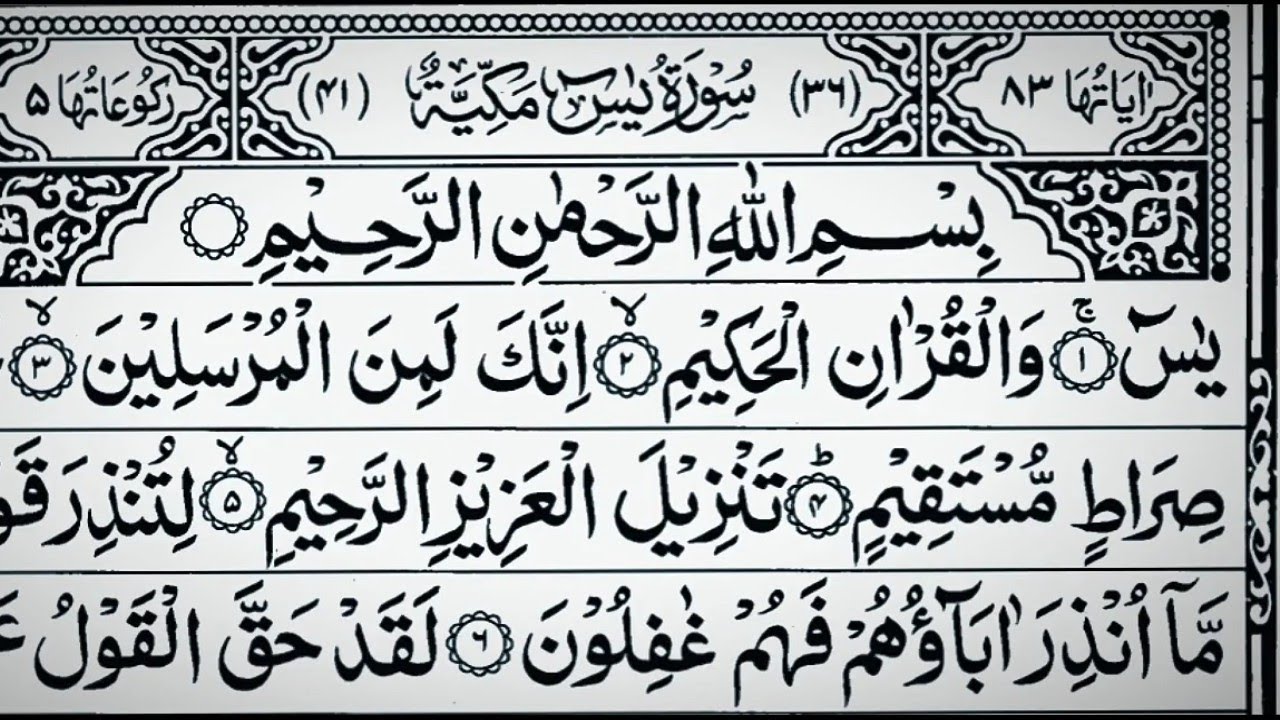 اٰيَاتُهَا ٨٣ (٣٦) سُوْرَةُ يٰسٓ مَكِّيَّةٌ (٤١) رُكُوْعَاتُهَا ٥
بِسْمِ اللّٰهِ الرَّحْمٰنِ الرَّحِيْمِ
يٰسٓ ۚ ١ وَالْقُرْاٰنِ الْحَكِيْمِ ۙ ٢ اِنَّكَ لَمِنَ الْمُرْسَلِيْنَ ۙ ٣
صِرَاطٍ مُّسْتَقِيْمٍ ؕ ۴ تَنْزِيْلَ الْعَزِيْزِ الرَّحِيْمِ ۙ ۵ لِتُنْذِرَ
مَّاۤ اُنْذِرَ اٰبَآؤُهُمْ فَهُمْ غٰفِلُوْنَ ٦ لَقَدْ حَقَّ الْقَوْلُ